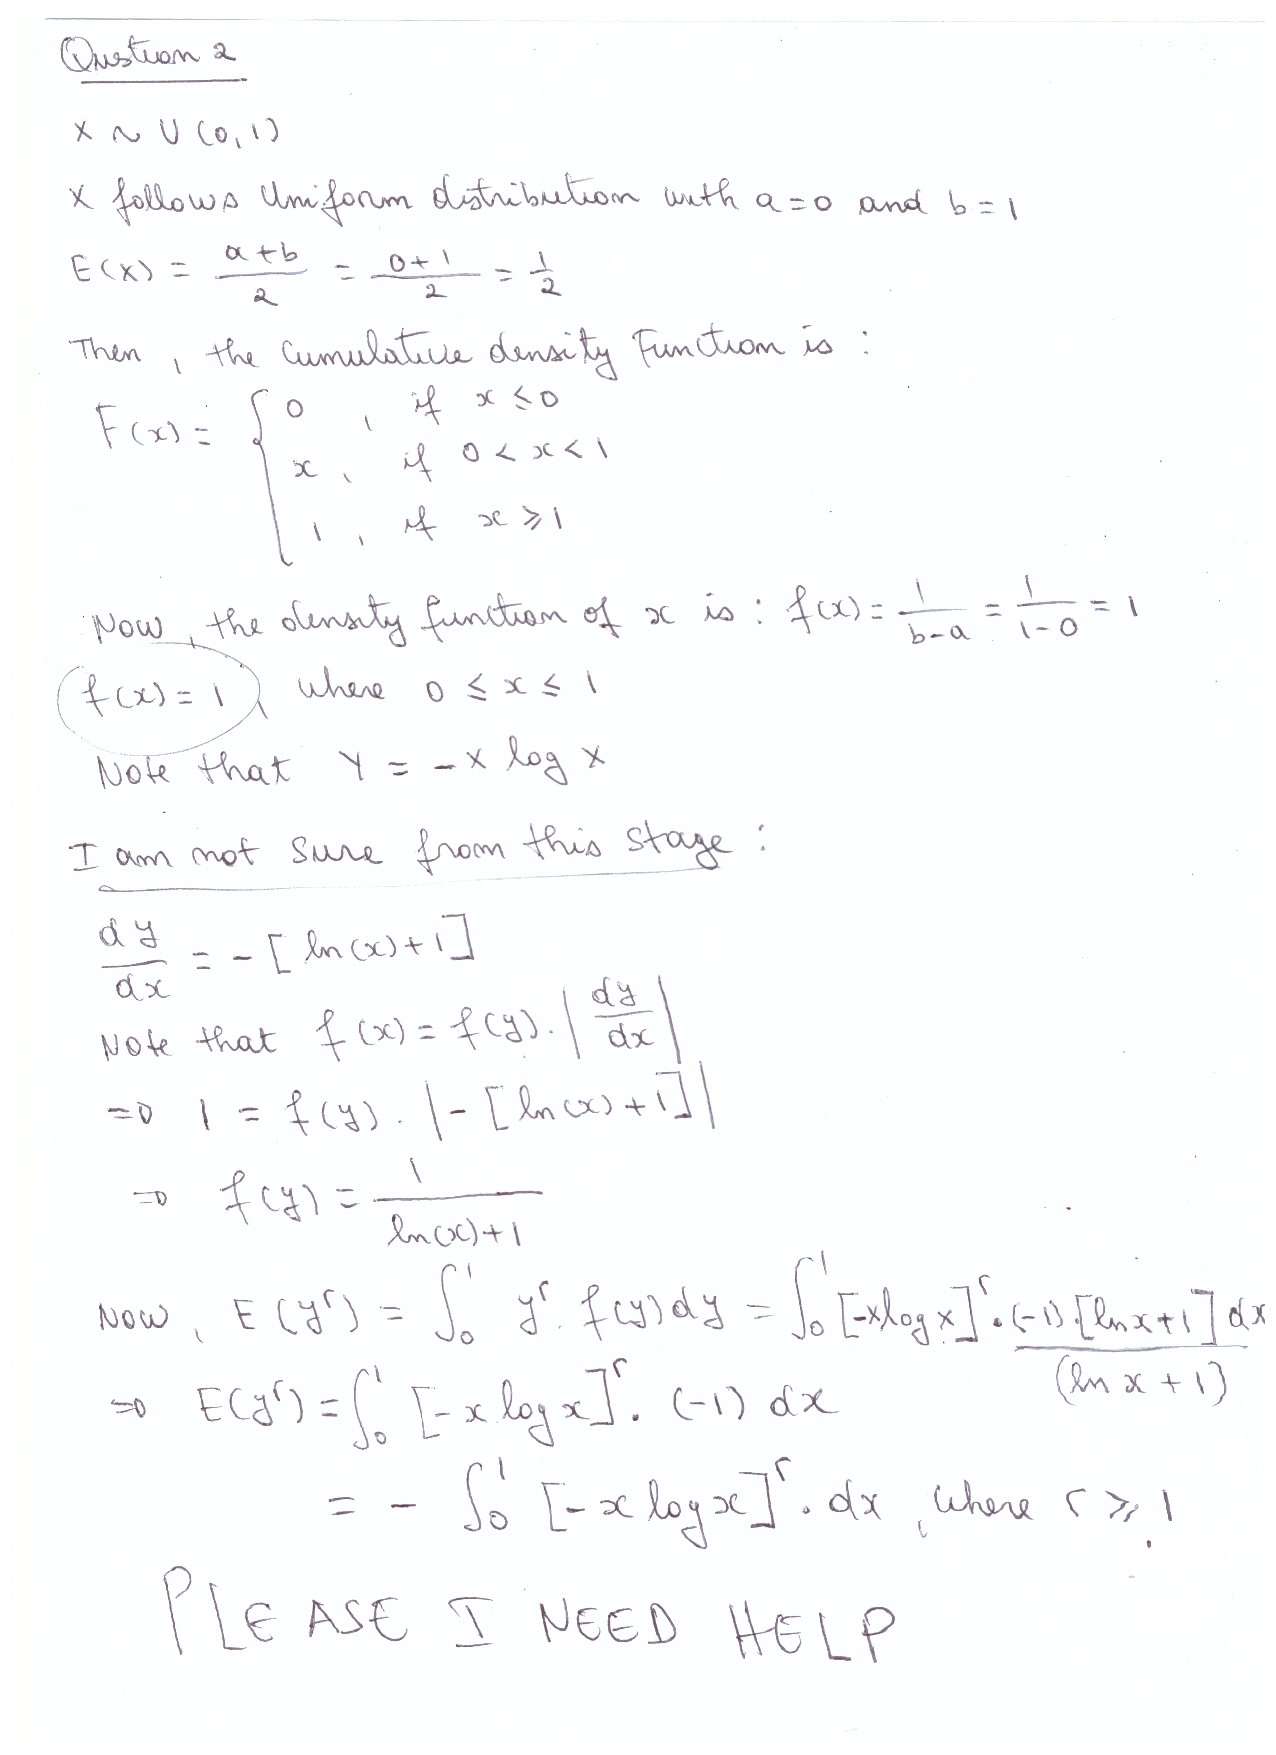 Question 2
X ~ U (0, 1)
X follows Uniform distribution with a = 0 and b = 1
E(X) = (a + b)/2 = (0 + 1)/2 = 1/2
Then, the Cumulative density Function is :
F(x) = { 0 , if x ≤ 0
x , if 0 < x < 1
1 , if x ⩾ 1
Now, the density function of x is : f(x) = 1/(b-a) = 1/(1-0) = 1
f(x) = 1, where 0 ≤ x ≤ 1
Note that Y = - X log X
I am not sure from this stage :
dy/dx = - [ ln(x) + 1 ]
Note that f(x) = f(y) . | dy/dx |
⇒ 1 = f(y) . | - [ ln(x) + 1 ] |
⇒ f(y) = 1/(ln(x) + 1)
Now, E(y^r) = ∫_0^1 y^r . f(y) dy = ∫_0^1 [-x log x]^r . (-1) . [ln x + 1] dx/(ln x + 1)
⇒ E(y^r) = ∫_0^1 [- x log x]^r . (-1) dx
= - ∫_0^1 [- x log x]^r . dx , where r ⩾ 1
PLEASE I NEED HELP